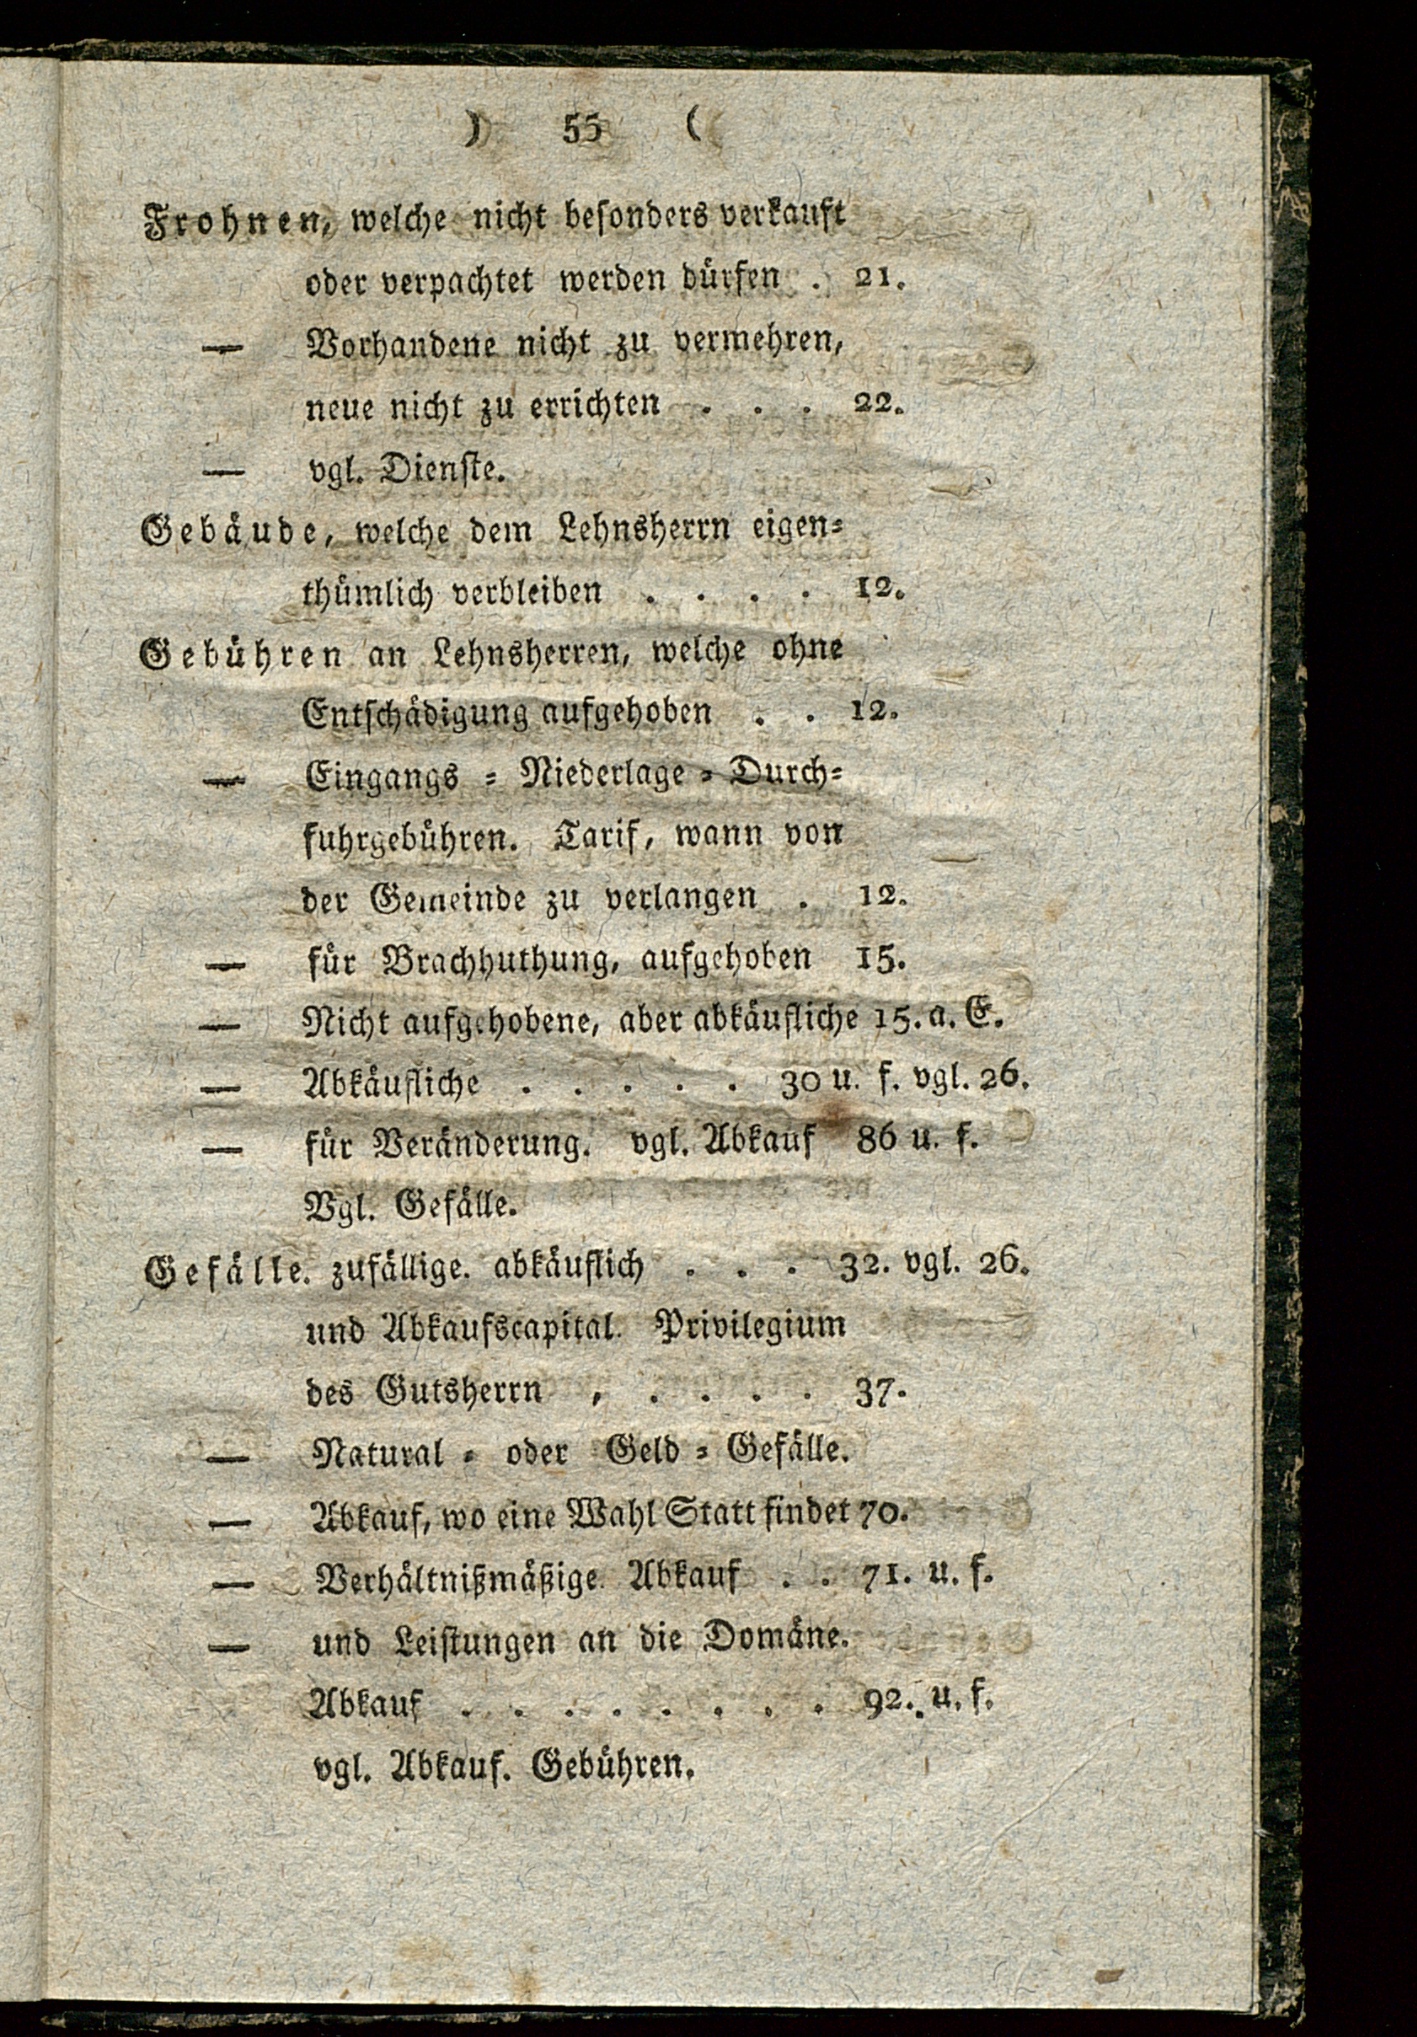 ) 55 (
Frohnen, welche nicht besonders verkauft
oder verpachtet werden dürfen . 21.
— Vorhandene nicht zu vermehren,
neue nicht zu errichten . . . 22.
— vgl. Dienste.
Gebäude, welche dem Lehnsherrn eigen-
thümlich verbleiben . . . . 12.
Gebühren an Lehnsherren, welche ohne
Entschädigung aufgehoben . . 12.
— Eingangs - Niederlage - Durch-
fuhrgebühren. Tarif, wann von
der Gemeinde zu verlangen . 12.
— für Brachhuthung, aufgehoben 15.
— Nicht aufgehobene, aber abkäufliche 15. a. E.
— Abkäufliche . . . . . 30 u. f. vgl. 26.
— für Veränderung. vgl. Abkauf 86 u. f.
Vgl. Gefälle.
Gefälle. zufällige. abkäuflich . . . 32. vgl. 26.
und Abkaufscapital. Privilegium
des Gutsherrn , . . . . 37.
— Natural - oder Geld - Gefälle.
— Abkauf, wo eine Wahl Statt findet 70.
— Verhältnißmäßige Abkauf . . 71. u. f.
— und Leistungen an die Domäne.
Abkauf . . . . . . . . 92. u. f.
vgl. Abkauf. Gebühren.